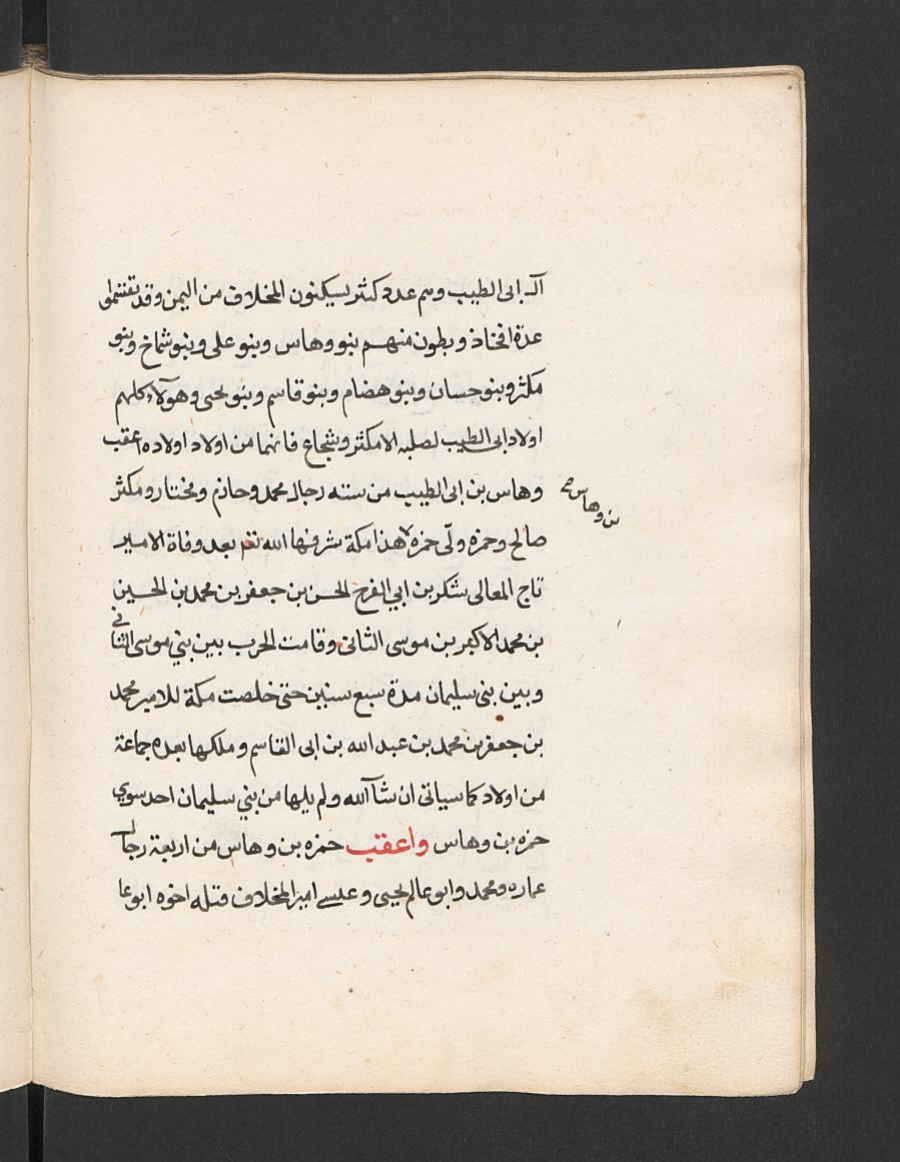 آل ابى الطيب وهم عدد كثر يسكنون المخلاف من اليمن وقد تقسموا
عدة افخاذ وبطون منهم بنو وهاس وبنو على وبنو شماخ وبنو
مكثر وبنو حسان وبنو هضام وبنو قاسم وبنو يحيى وهولآء كلهم
اولاد ابى الطيب لصلبه الا مكثر وشجاع فانهما من اولاد اولاده اعقب
وهاس بن ابى الطيب من سته رجال محمد وحازم ومختار ومكثر
صالح وحمزه ولّى حمزه هذا مكة شرفها الله تعم بعد وفاة الامير
بن وهاس صح
تاج المعالى شكر بن ابي الفرح الحسن بن جعفر بن محمد بن الحسين
بن محمد الاكبر بن موسى الثانى وقامت الحرب بين بني موسى الثانى
وبين بنى سليمان مدة سبع سنين حتى خلصت مكة للامير محمد
بن جعفر بن محمد بن عبد الله بن ابى القاسم وملكها بعده جماعة
من اولاد كما سياتى ان شآ الله ولم يلها من بني سليمان احد سوي
حمزه بن وهاس واعقب حمزه بن وهاس من اربعة رجال
عماره ومحمد وابو عالم يحيى وعيسى امير المخلاف قتله اخوه ابو عا